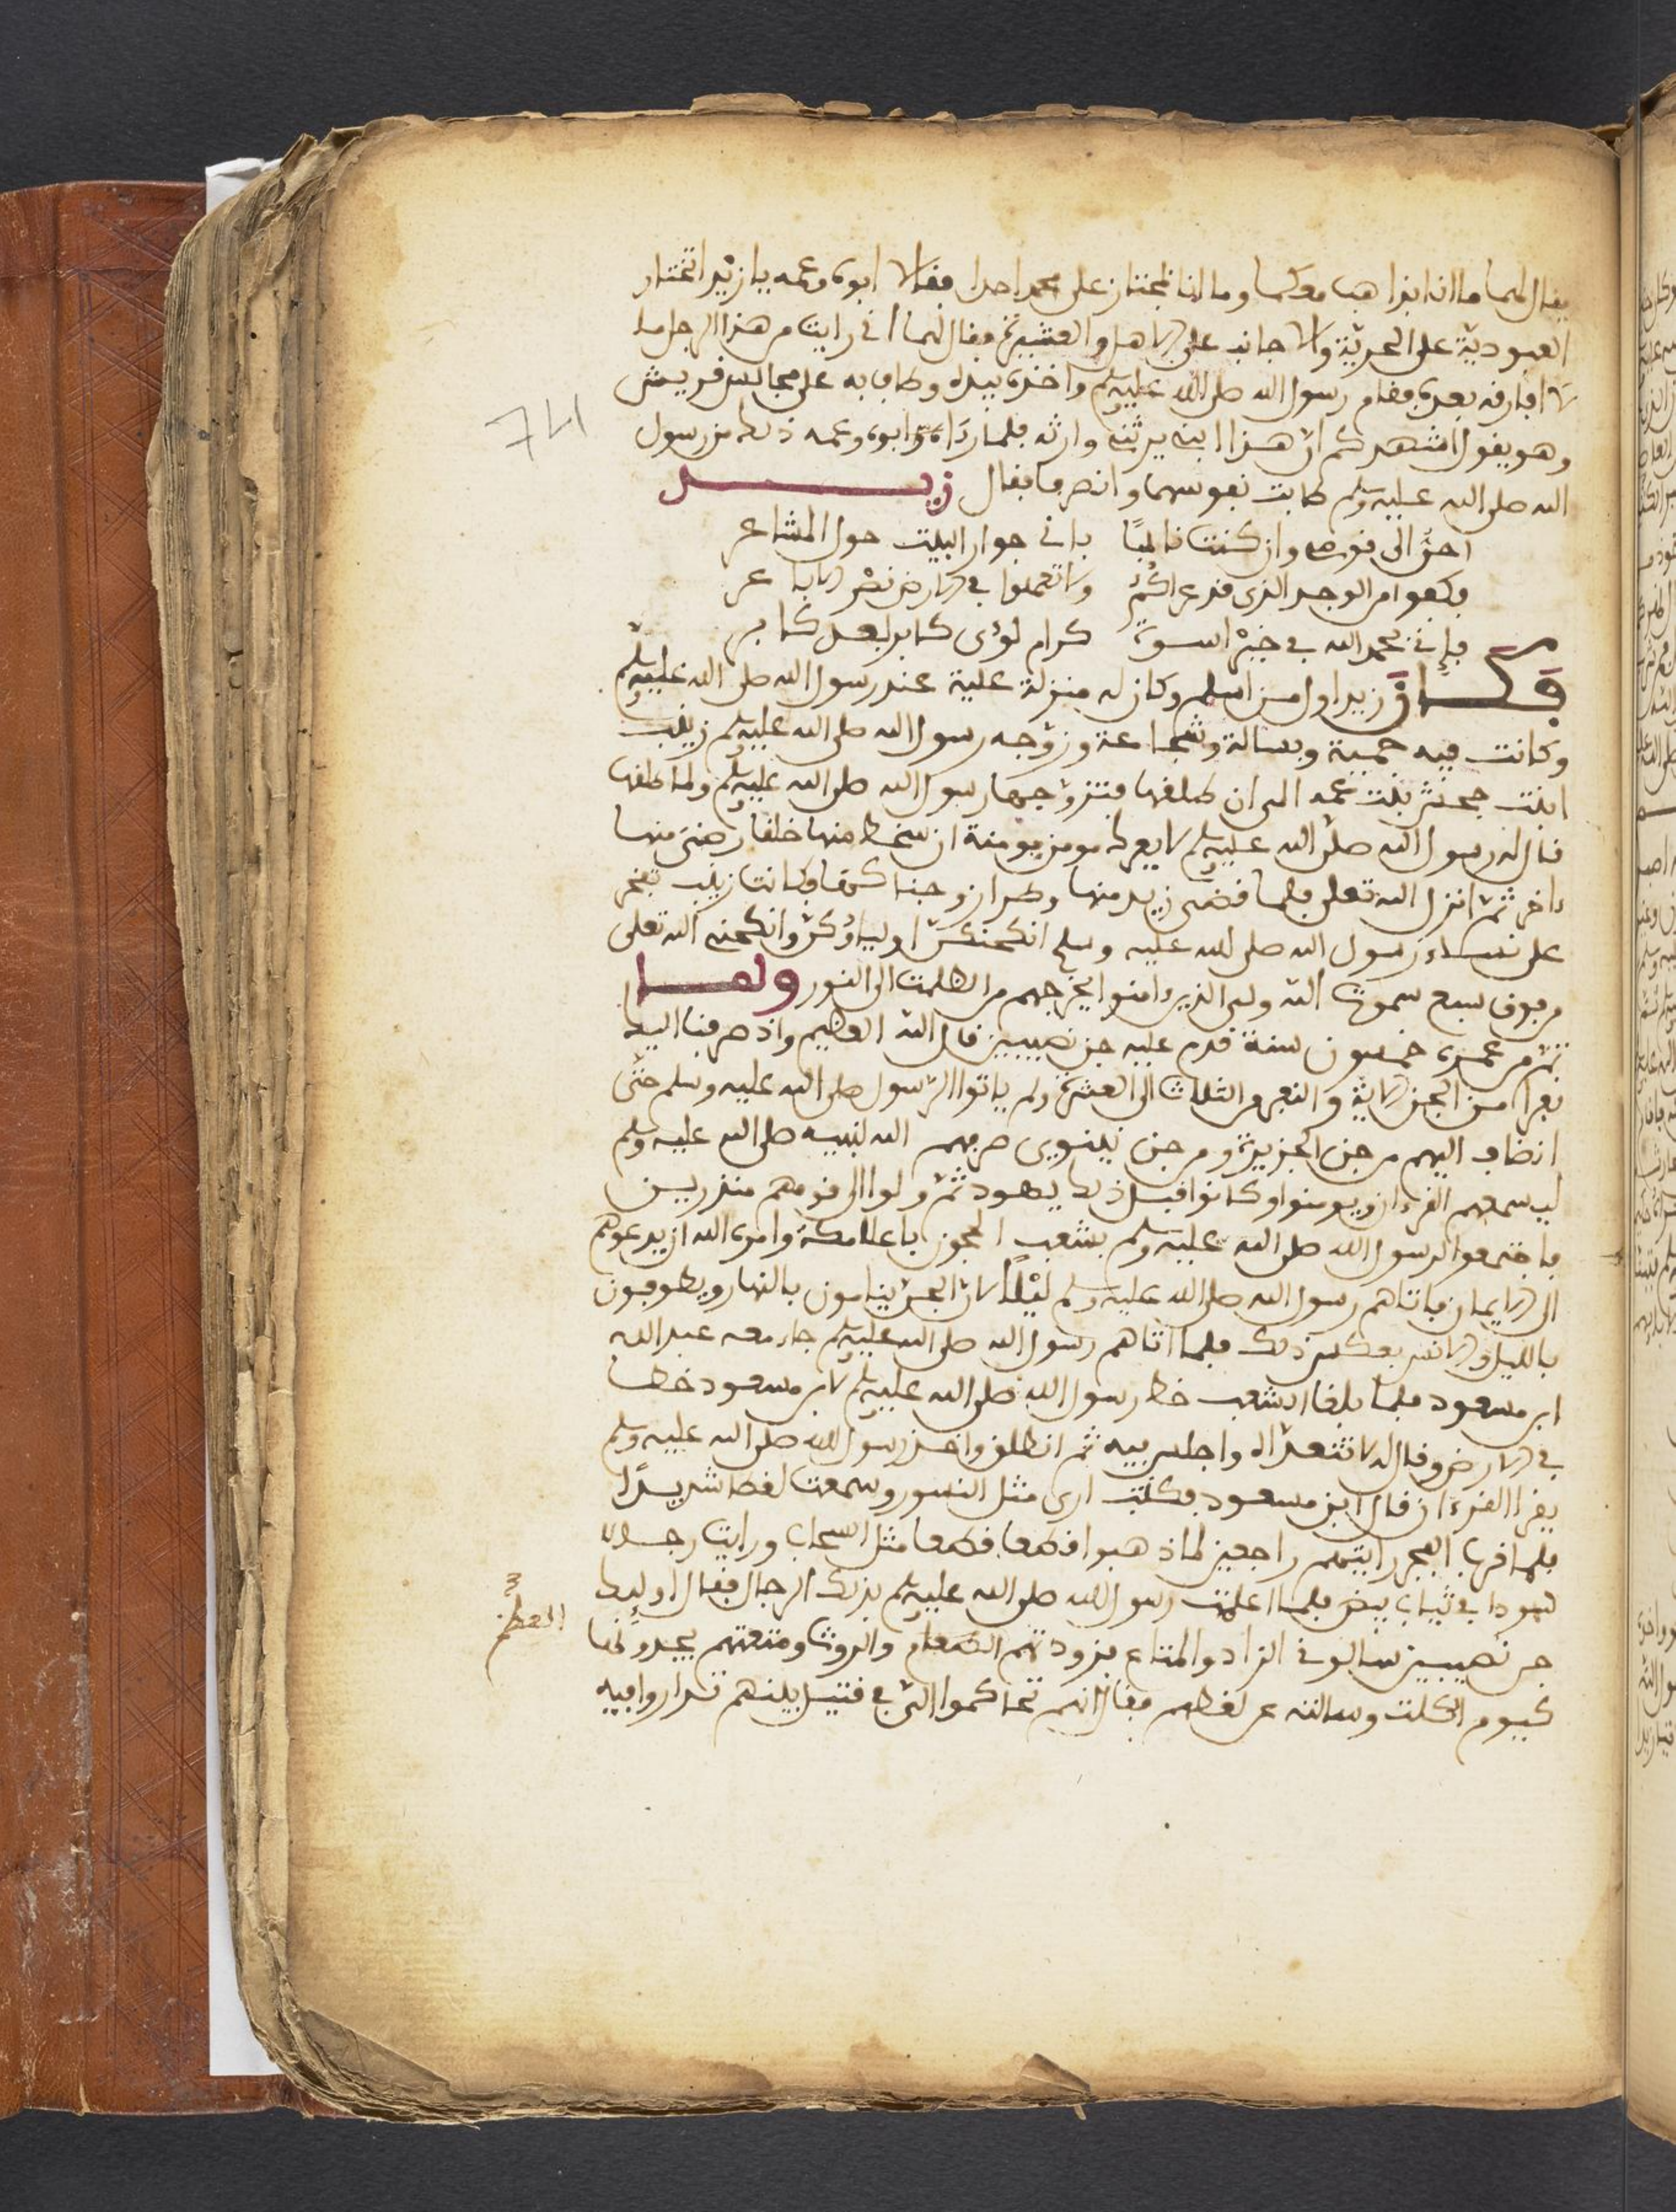 فقال لهما ما انا بذاهب معكما وما انا بمختار على محمد احدا فقالا ابوه وعمه يا زيد اتختار
العبودية على الحرية والاجانب على الاهل والعشيرة فقال لهما اني رايت من هذا الرجل ما
لا افارقه بعده فقام رسول الله صلى الله عليه وسلم واخذه بيده وطاف به على مجالس قريش
وهو يقول اشهدكم ان هذا ابنى يرثني وارثه فلما راه ابوه وعمه ذلك من رسول
الله صلى الله عليه وسلم طابت نفوسهما وانصرفا فقال زيد
احن الى قومى وان كنت نائيا باني جوار البيت حول المشاعر
فكفوا من الوجد الذي قد عراكم ولا تعملوا في الارض نص الاباعر
فإني بحمد الله في خير اسرة كرام لؤي كابر بعد كابر
فكان زيد اول من اسلم وكان له منزلة علية عند رسول الله صلى الله عليه وسلم
وكانت فيه حمية وبسالة وشجاعة وزوجه رسول الله صلى الله عليه وسلم زينب
ابنت جحش بنت عمه الى ان طلقها فتزوجها رسول الله صلى الله عليه وسلم ولما طلقها
قال له رسول الله صلى الله عليه وسلم لا يعرك مومن مومنة ان سخط منها خلقا رضى منها
ءاخر ثم انزل الله تعلى فلما قضى زيد منها وطرا زوجناكها وكانت زينب تفخر
على نساء رسول الله صلى الله عليه وسلم انكحتكن اولياؤكن وانكحنى الله تعلى
من فوق سبع سموت الله ولى الذين ءامنوا يخرجهم من الظلمت الى النور ولما
تم من عمره خمسون سنة قدم عليه جن نصيبين قال الله العظيم واذ صرفنا اليك
نفرا من الجن الاية والنفر من الثلاث الى العشرة ولم ياتوا الرسول صلى الله عليه وسلم حتى
انضاف اليهم من جن الجزيرة ومن جن نينوى صرفهم الله لنبيه صلى الله عليه وسلم
ليسمعهم القرءان ويومنوا وكانوا قبل ذلك يهود ثم ولوا الى قومهم منذرين
فاجتمعوا لرسول الله صلى الله عليه وسلم بشعب الحجون باعلا مكة وامره الله ان يدعوهم
الى الايمان فاتاهم رسول الله صلى الله عليه وسلم ليلا لان الجن ينامون بالنهار ويطوفون
بالليل والانس بعكس ذلك فلما اتاهم رسول الله صلى الله عليه وسلم جاء معه عبد الله
ابن مسعود فلما بلغا الشعب خط رسول الله صلى الله عليه وسلم لابن مسعود خطا
في الارض وقال له لا تتعداه واجلس فيه ثم انطلق واخذ رسول الله صلى الله عليه وسلم
يقرا القرءان قال ابن مسعود فكنت ارى مثل النسور وسمعت لغطا شديدا
فلما قرب الفجر رايتهم راجعين لما ذهبوا قطعا قطعا مثل السحاب ورايت رجالا
سودا في ثياب بيض فلما اعلمت رسول الله صلى الله عليه وسلم بذلك الرجال فقال اوليك
جن نصيبين سالوني الزاد والمتاع فزودتهم العظام والروث ومتعتهم يجدونها
كيوم اكلت وسالته عن لغطهم فقال انهم تحاكموا الي في قتيل بينهم تداروا فيه
العظم
741